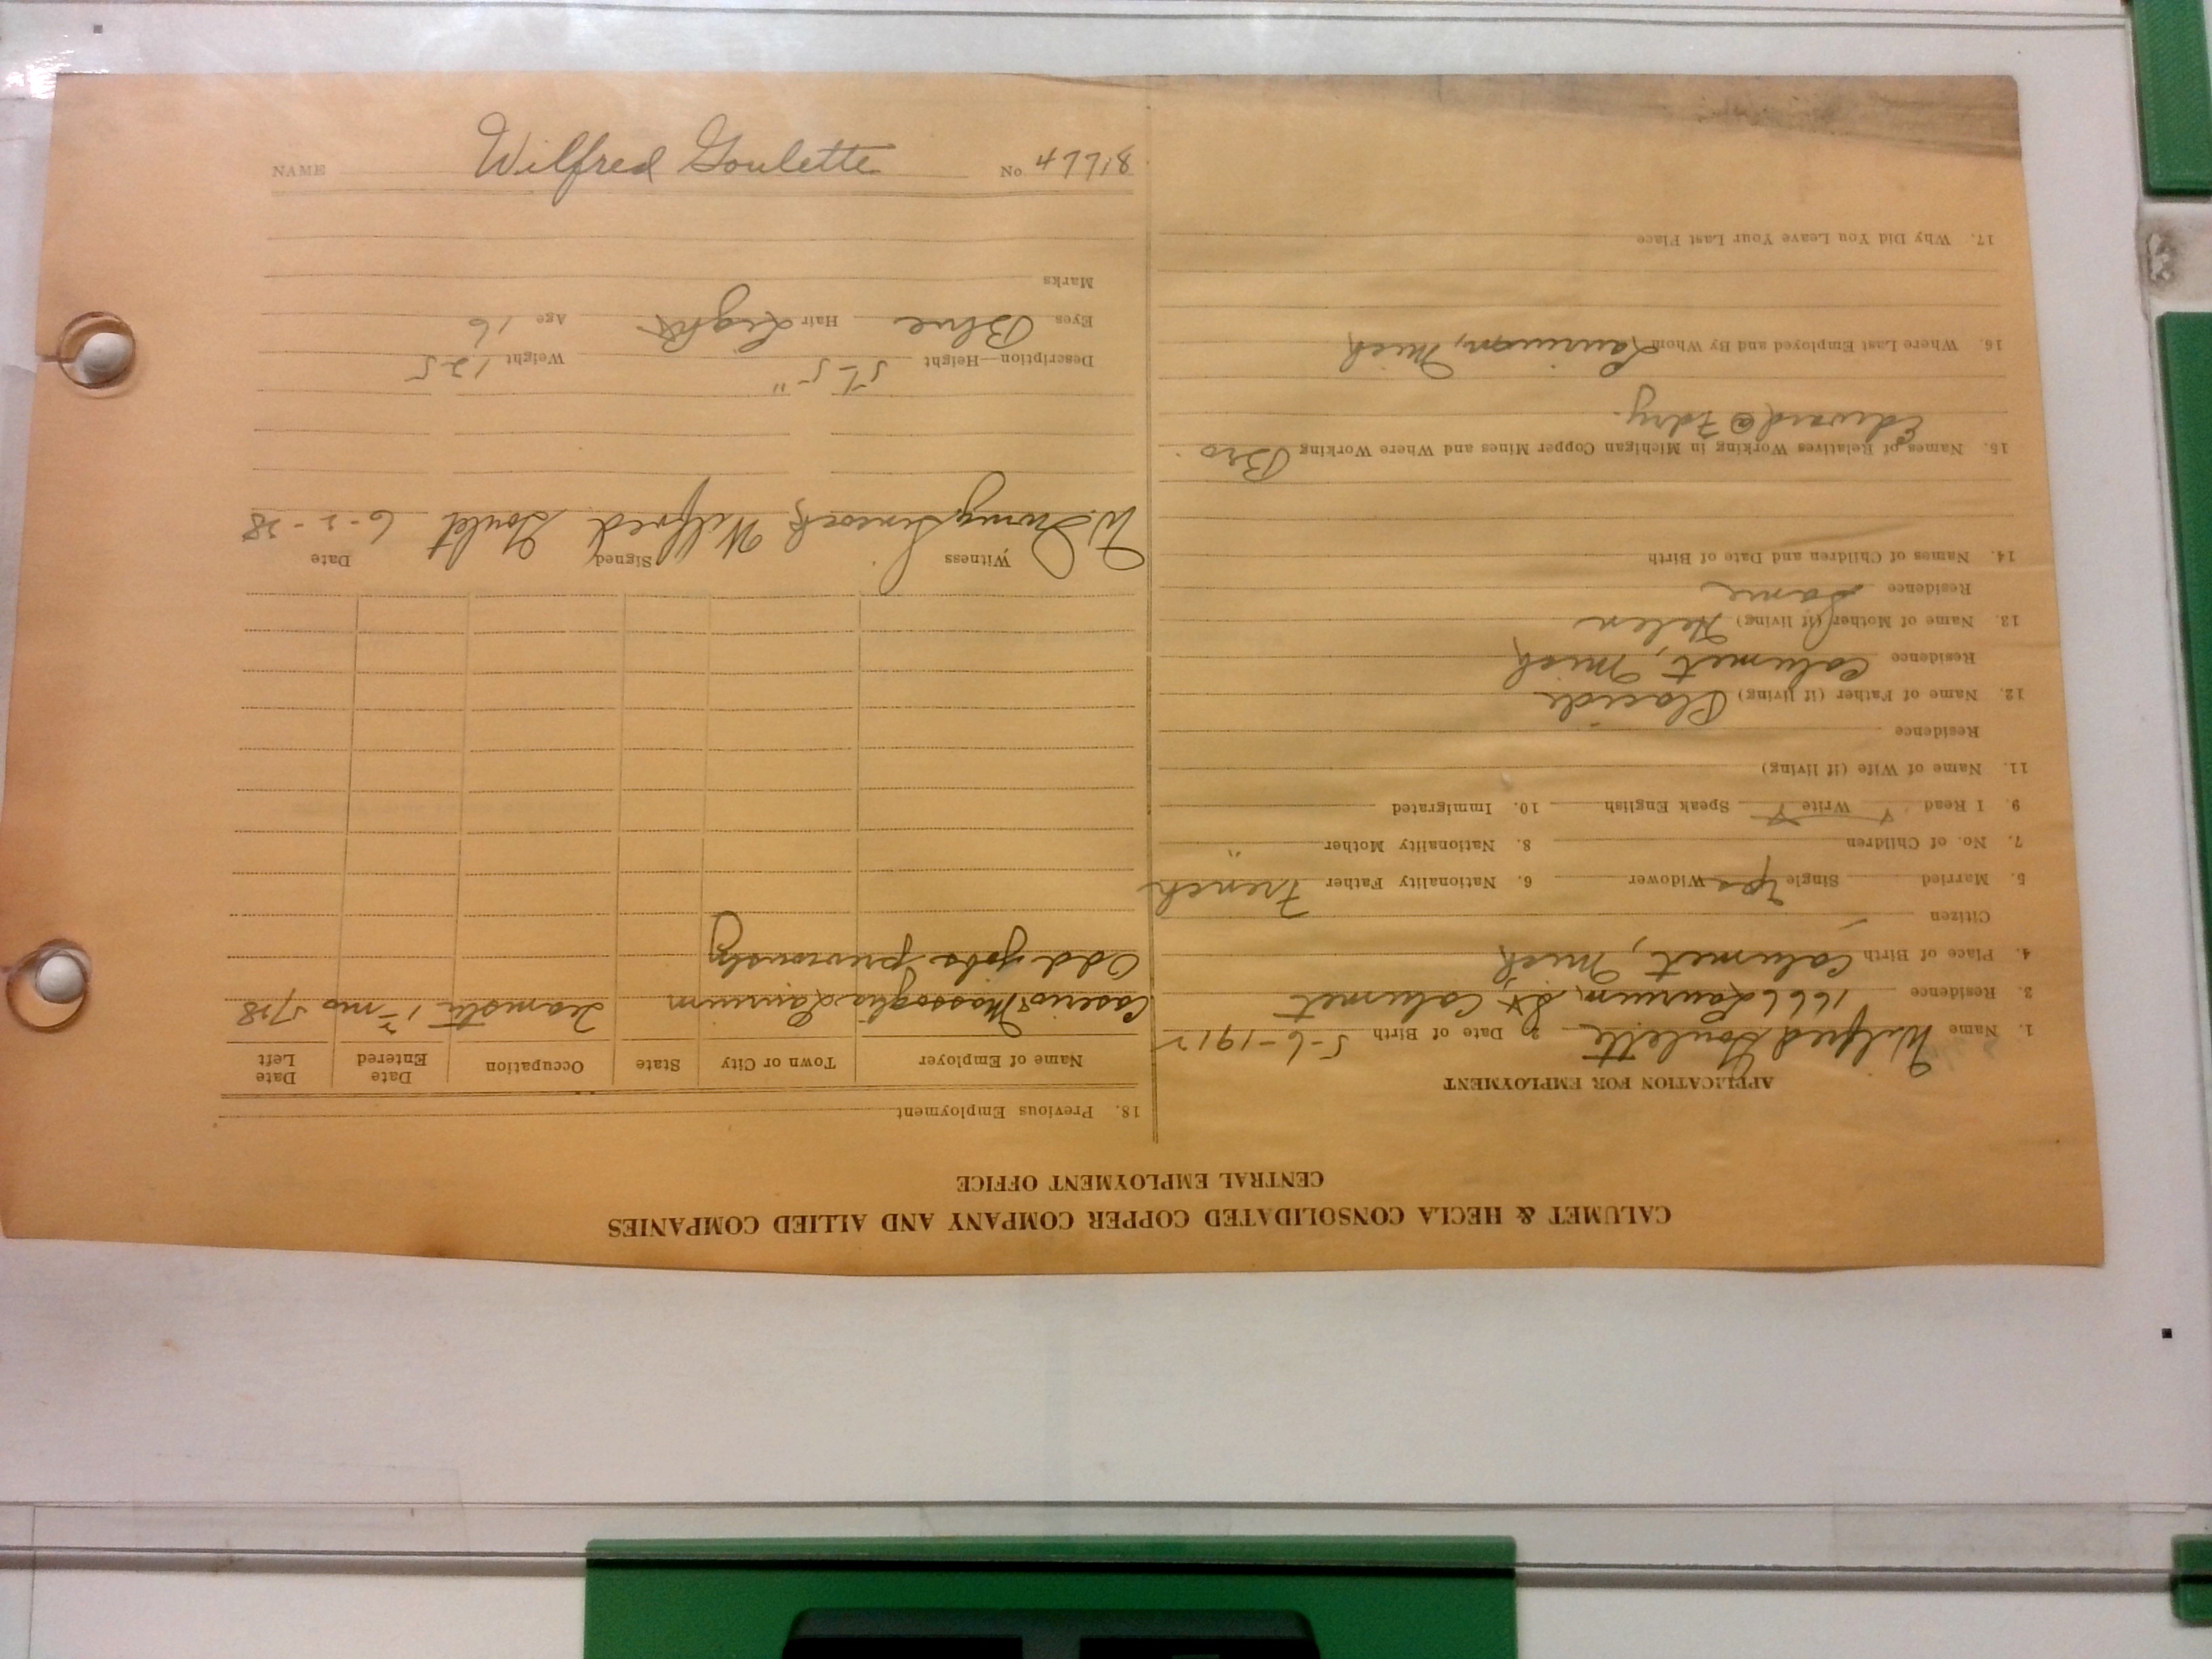 NAME Wilfred Goulette No 47718
CALUMET & HECLA CONSOLIDATED COPPER COMPANY AND ALLIED COMPANIES
CENTRAL EMPLOYMENT OFFICE
APPLICATION FOR EMPLOYMENT
1. Name Wilfred Goulette 2. Date of Birth 5-6-1912
3. Residence 1666 Laurium St Calumet
4. Place of Birth Calumet, Mich
Citizen
5. Married Single yes Widower 6. Nationality Father French
7. No. of Children 8. Nationality Mother "
9. I Read Write Speak English 10. Immigrated
11. Name of Wife (if living)
Residence
12. Name of Father (if living) Placide
Residence Calumet, Mich
13. Name of Mother (if living) Helen
Residence Same
14. Names of Children and Date of Birth
15. Names of Relatives Working in Michigan Copper Mines and Where Working Bro
Edward @ Fdry.
16. Where Last Employed and By Whom Laurium, Mich
17. Why Did You Leave Your Last Place
18. Previous Employment
Name of Employer Town or City State Occupation Date Entered Date Left
Caserio & Massoglia Laurium Teamster mo
Odd jobs previously
Witness Signed Date
W. Simcock Wilfred Goulet 6-2-28
Description—Height 5' 5" Weight 125
Eyes Blue Hair Light Age 16
Marks